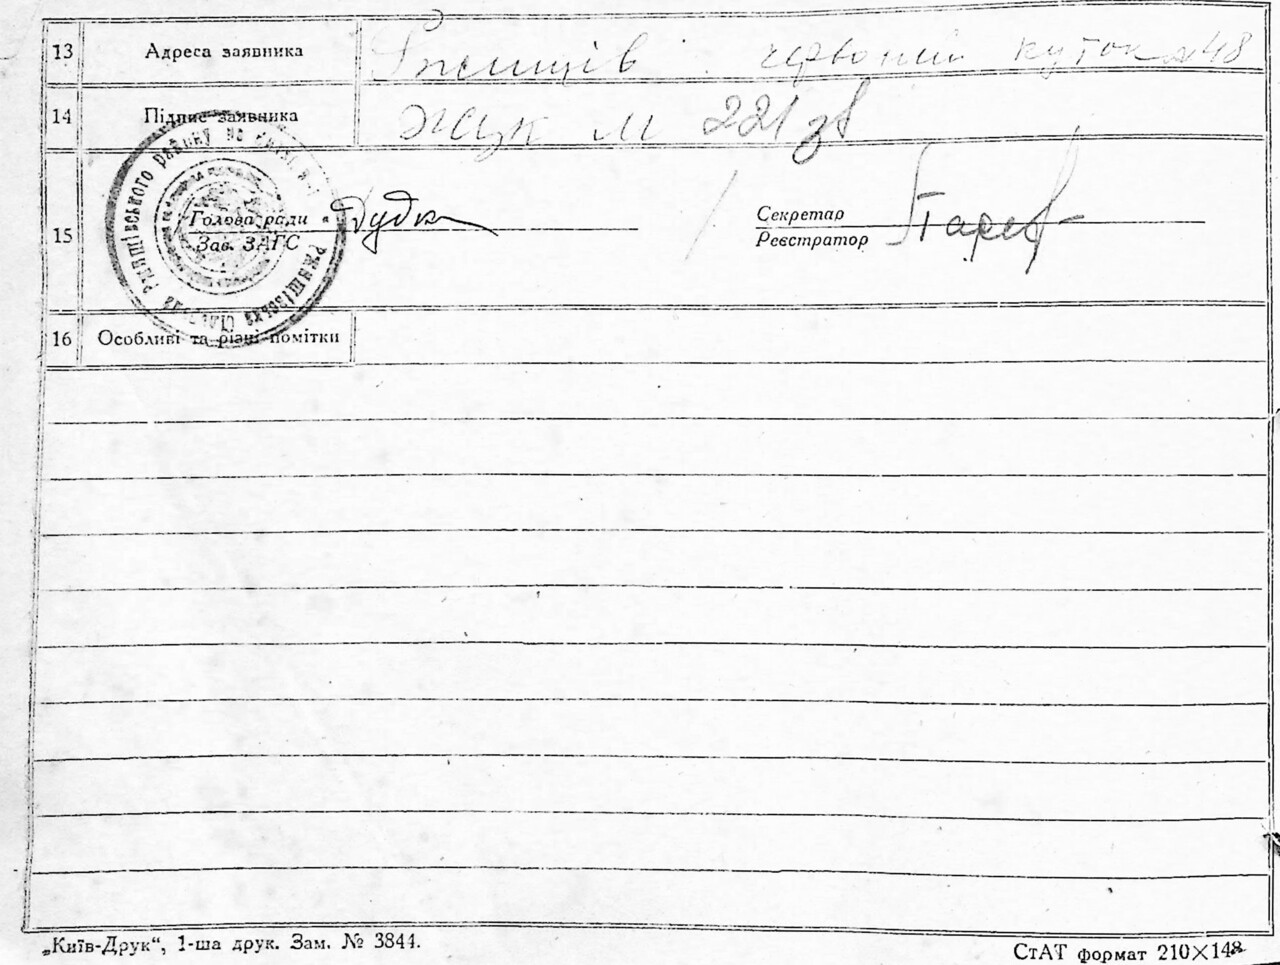 13 Адреса заявника Ржищів червоний куток 48
14 Підпис заявника Жук М 221
15 Голова ради Дудка Секретар
Зав. ЗАГС Реєстратор
16 Особливі та різні помітки
„Київ-Друк“, 1-ша друк. Зам. № 3844. СтАТ формат 210×148